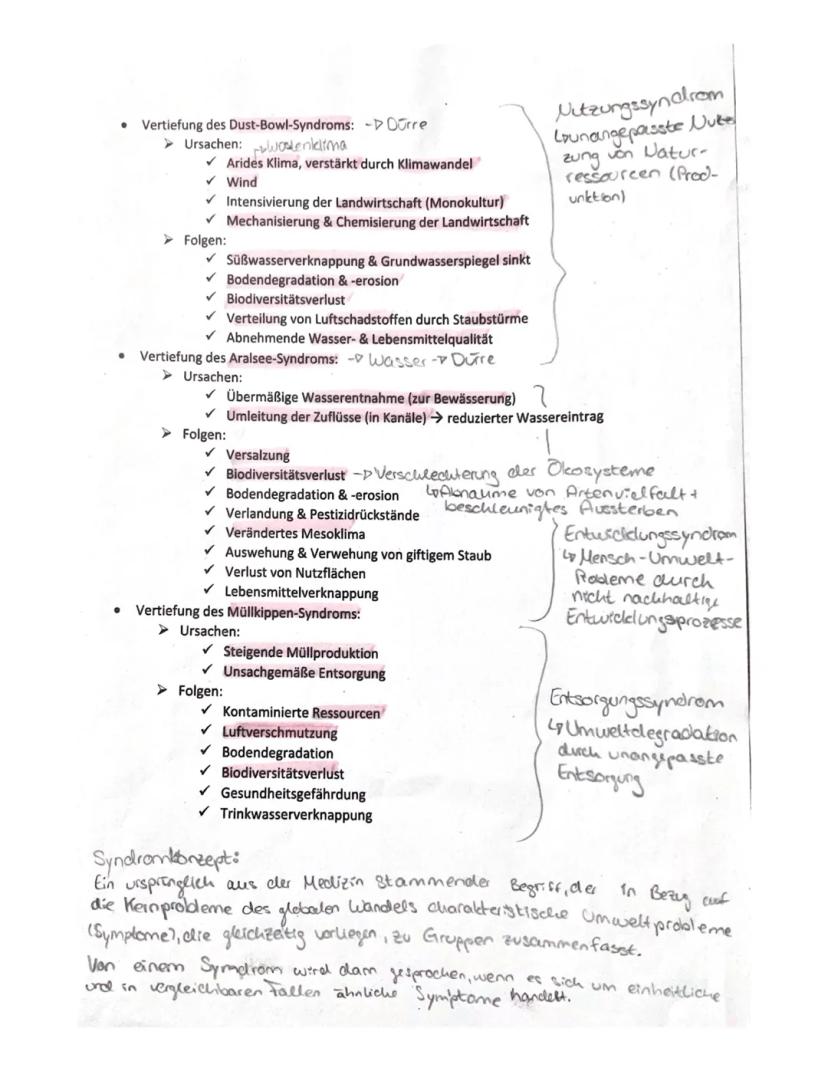 Nutzungssyndrom
↳unangepasste Nut-
zung von Natur-
ressourcen (Prod-
unktion)
• Vertiefung des Dust-Bowl-Syndroms: -▷ Dürre
➢ Ursachen: ↳Wüstenklima
✓ Arides Klima, verstärkt durch Klimawandel
✓ Wind
✓ Intensivierung der Landwirtschaft (Monokultur)
✓ Mechanisierung & Chemisierung der Landwirtschaft
➢ Folgen:
✓ Süßwasserverknappung & Grundwasserspiegel sinkt
✓ Bodendegradation & -erosion
✓ Biodiversitätsverlust
✓ Verteilung von Luftschadstoffen durch Staubstürme
✓ Abnehmende Wasser- & Lebensmittelqualität
• Vertiefung des Aralsee-Syndroms: -▷ Wasser -▷ Dürre
➢ Ursachen:
✓ Übermäßige Wasserentnahme (zur Bewässerung)
✓ Umleitung der Zuflüsse (in Kanäle) → reduzierter Wassereintrag
➢ Folgen:
✓ Versalzung
✓ Biodiversitätsverlust -▷ Verschlechterung der Ökosysteme
✓ Bodendegradation & -erosion ↳Abnahme von Artenvielfalt +
beschleunigtes Aussterben
✓ Verlandung & Pestizidrückstände
✓ Verändertes Mesoklima
✓ Auswehung & Verwehung von giftigem Staub
✓ Verlust von Nutzflächen
✓ Lebensmittelverknappung
Entwicklungssyndrom
↳ Mensch-Umwelt-
Probleme durch
nicht nachhaltige
Entwicklungsprozesse
• Vertiefung des Müllkippen-Syndroms:
➢ Ursachen:
✓ Steigende Müllproduktion
✓ Unsachgemäße Entsorgung
➢ Folgen:
✓ Kontaminierte Ressourcen
✓ Luftverschmutzung
✓ Bodendegradation
✓ Biodiversitätsverlust
✓ Gesundheitsgefährdung
✓ Trinkwasserverknappung
Entsorgungssyndrom
↳ Umweltdegradation
durch unangepasste
Entsorgung
Syndromkonzept:
Ein ursprünglich aus der Medizin stammender Begriff, der in Bezug auf
die Kernprobleme des globalen Wandels charakteristische Umweltprobleme
(Symptome), die gleichzeitig vorliegen, zu Gruppen zusammenfasst.
Von einem Symdrom wird dann gesprochen, wenn es sich um einheitliche
und in vergleichbaren Fällen ähnliche Symptome handelt.